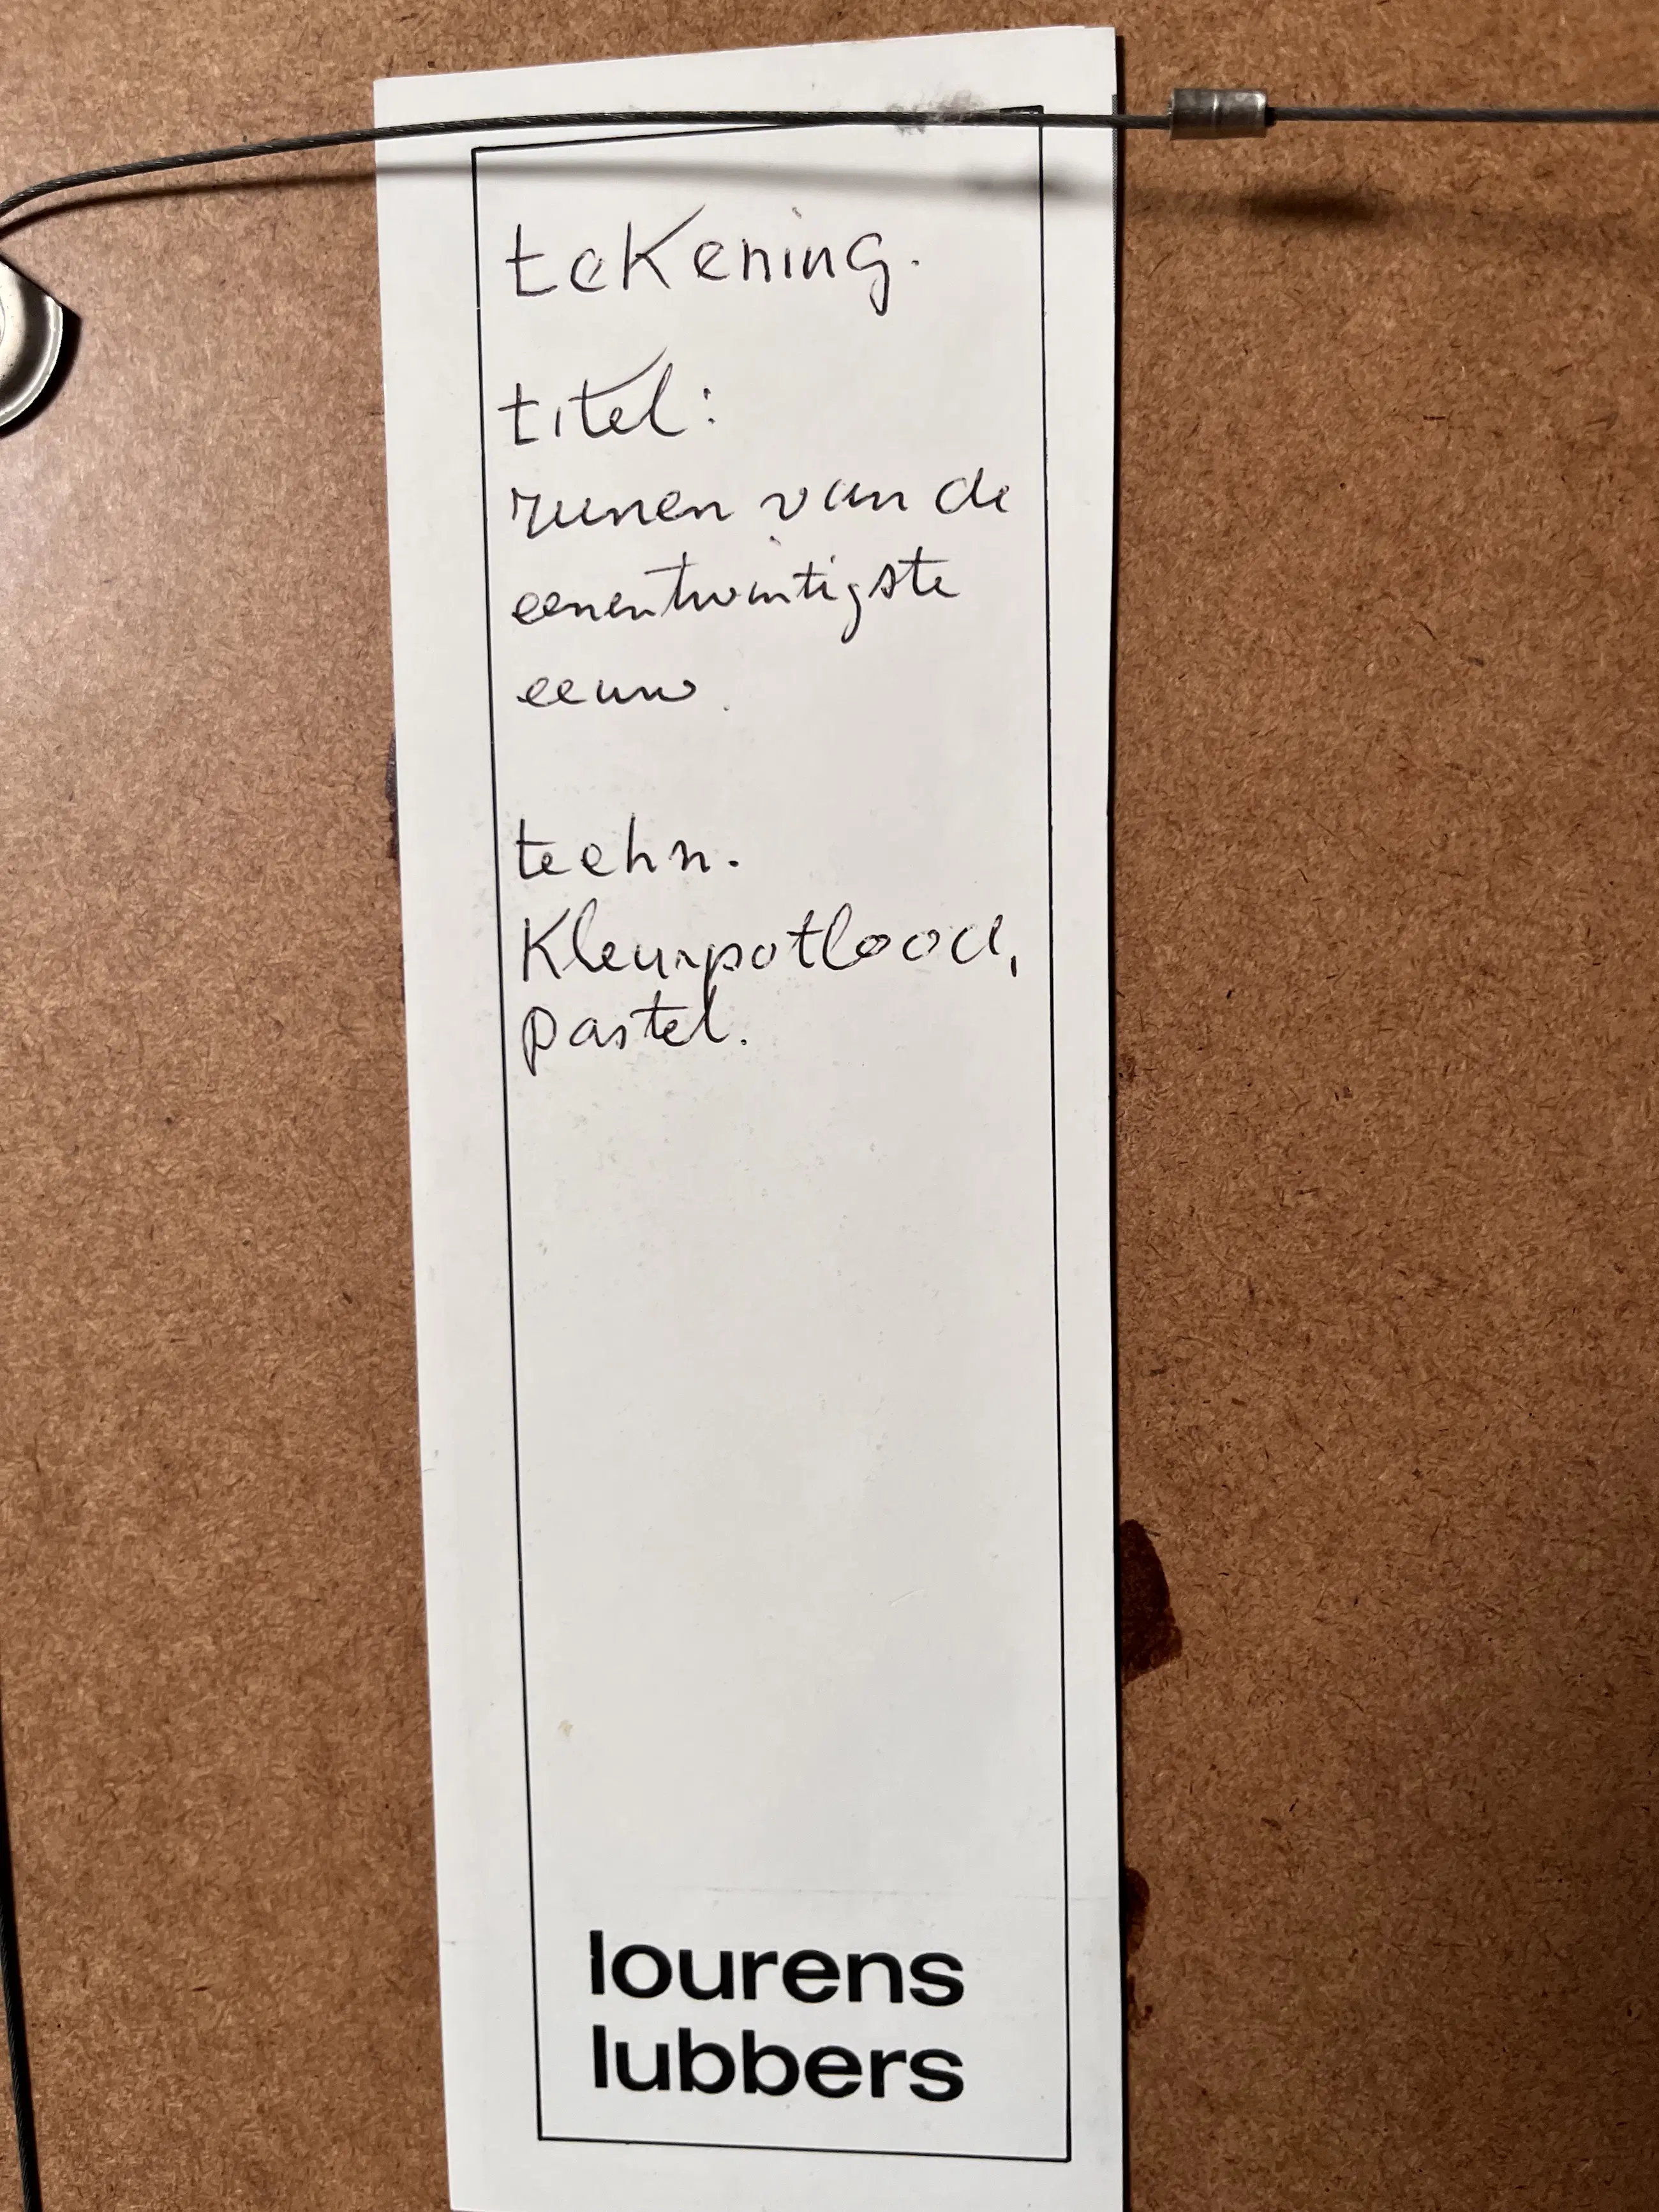 tekening.
titel:
runen van de
eenentwintigste
eeuw.
techn.
Kleurpotlood,
pastel.
lourens
lubbers